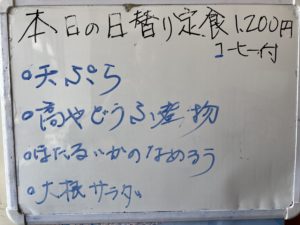 本日の日替り定食1,200円
コーヒー付
○天ぷら
○高やどうふ煮物
○ほたるいかのなめろう
○大根サラダ